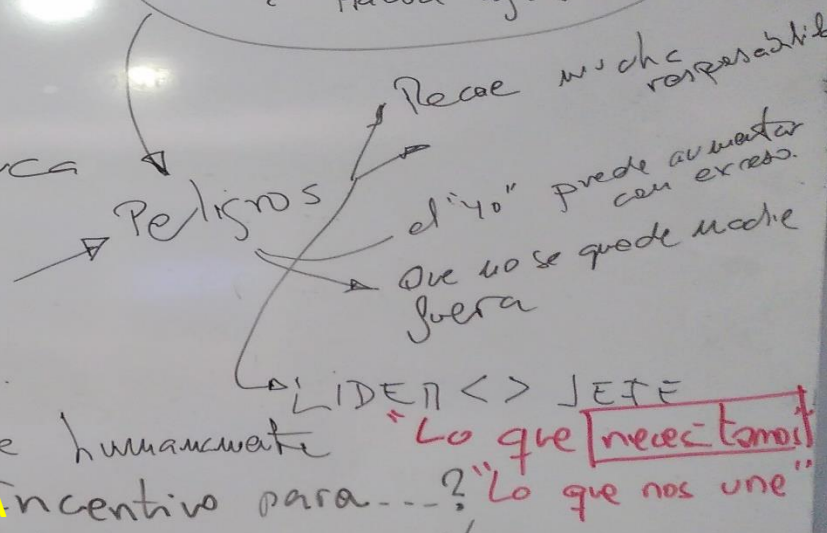 Recae mucha
responsabili
Peligros
el "yo" puede aumentar
con exceso.
Que no se quede nadie
fuera
LIDER <> JEFE
humanamente "Lo que necesitamos"
Incentivo para....? "Lo que nos une"